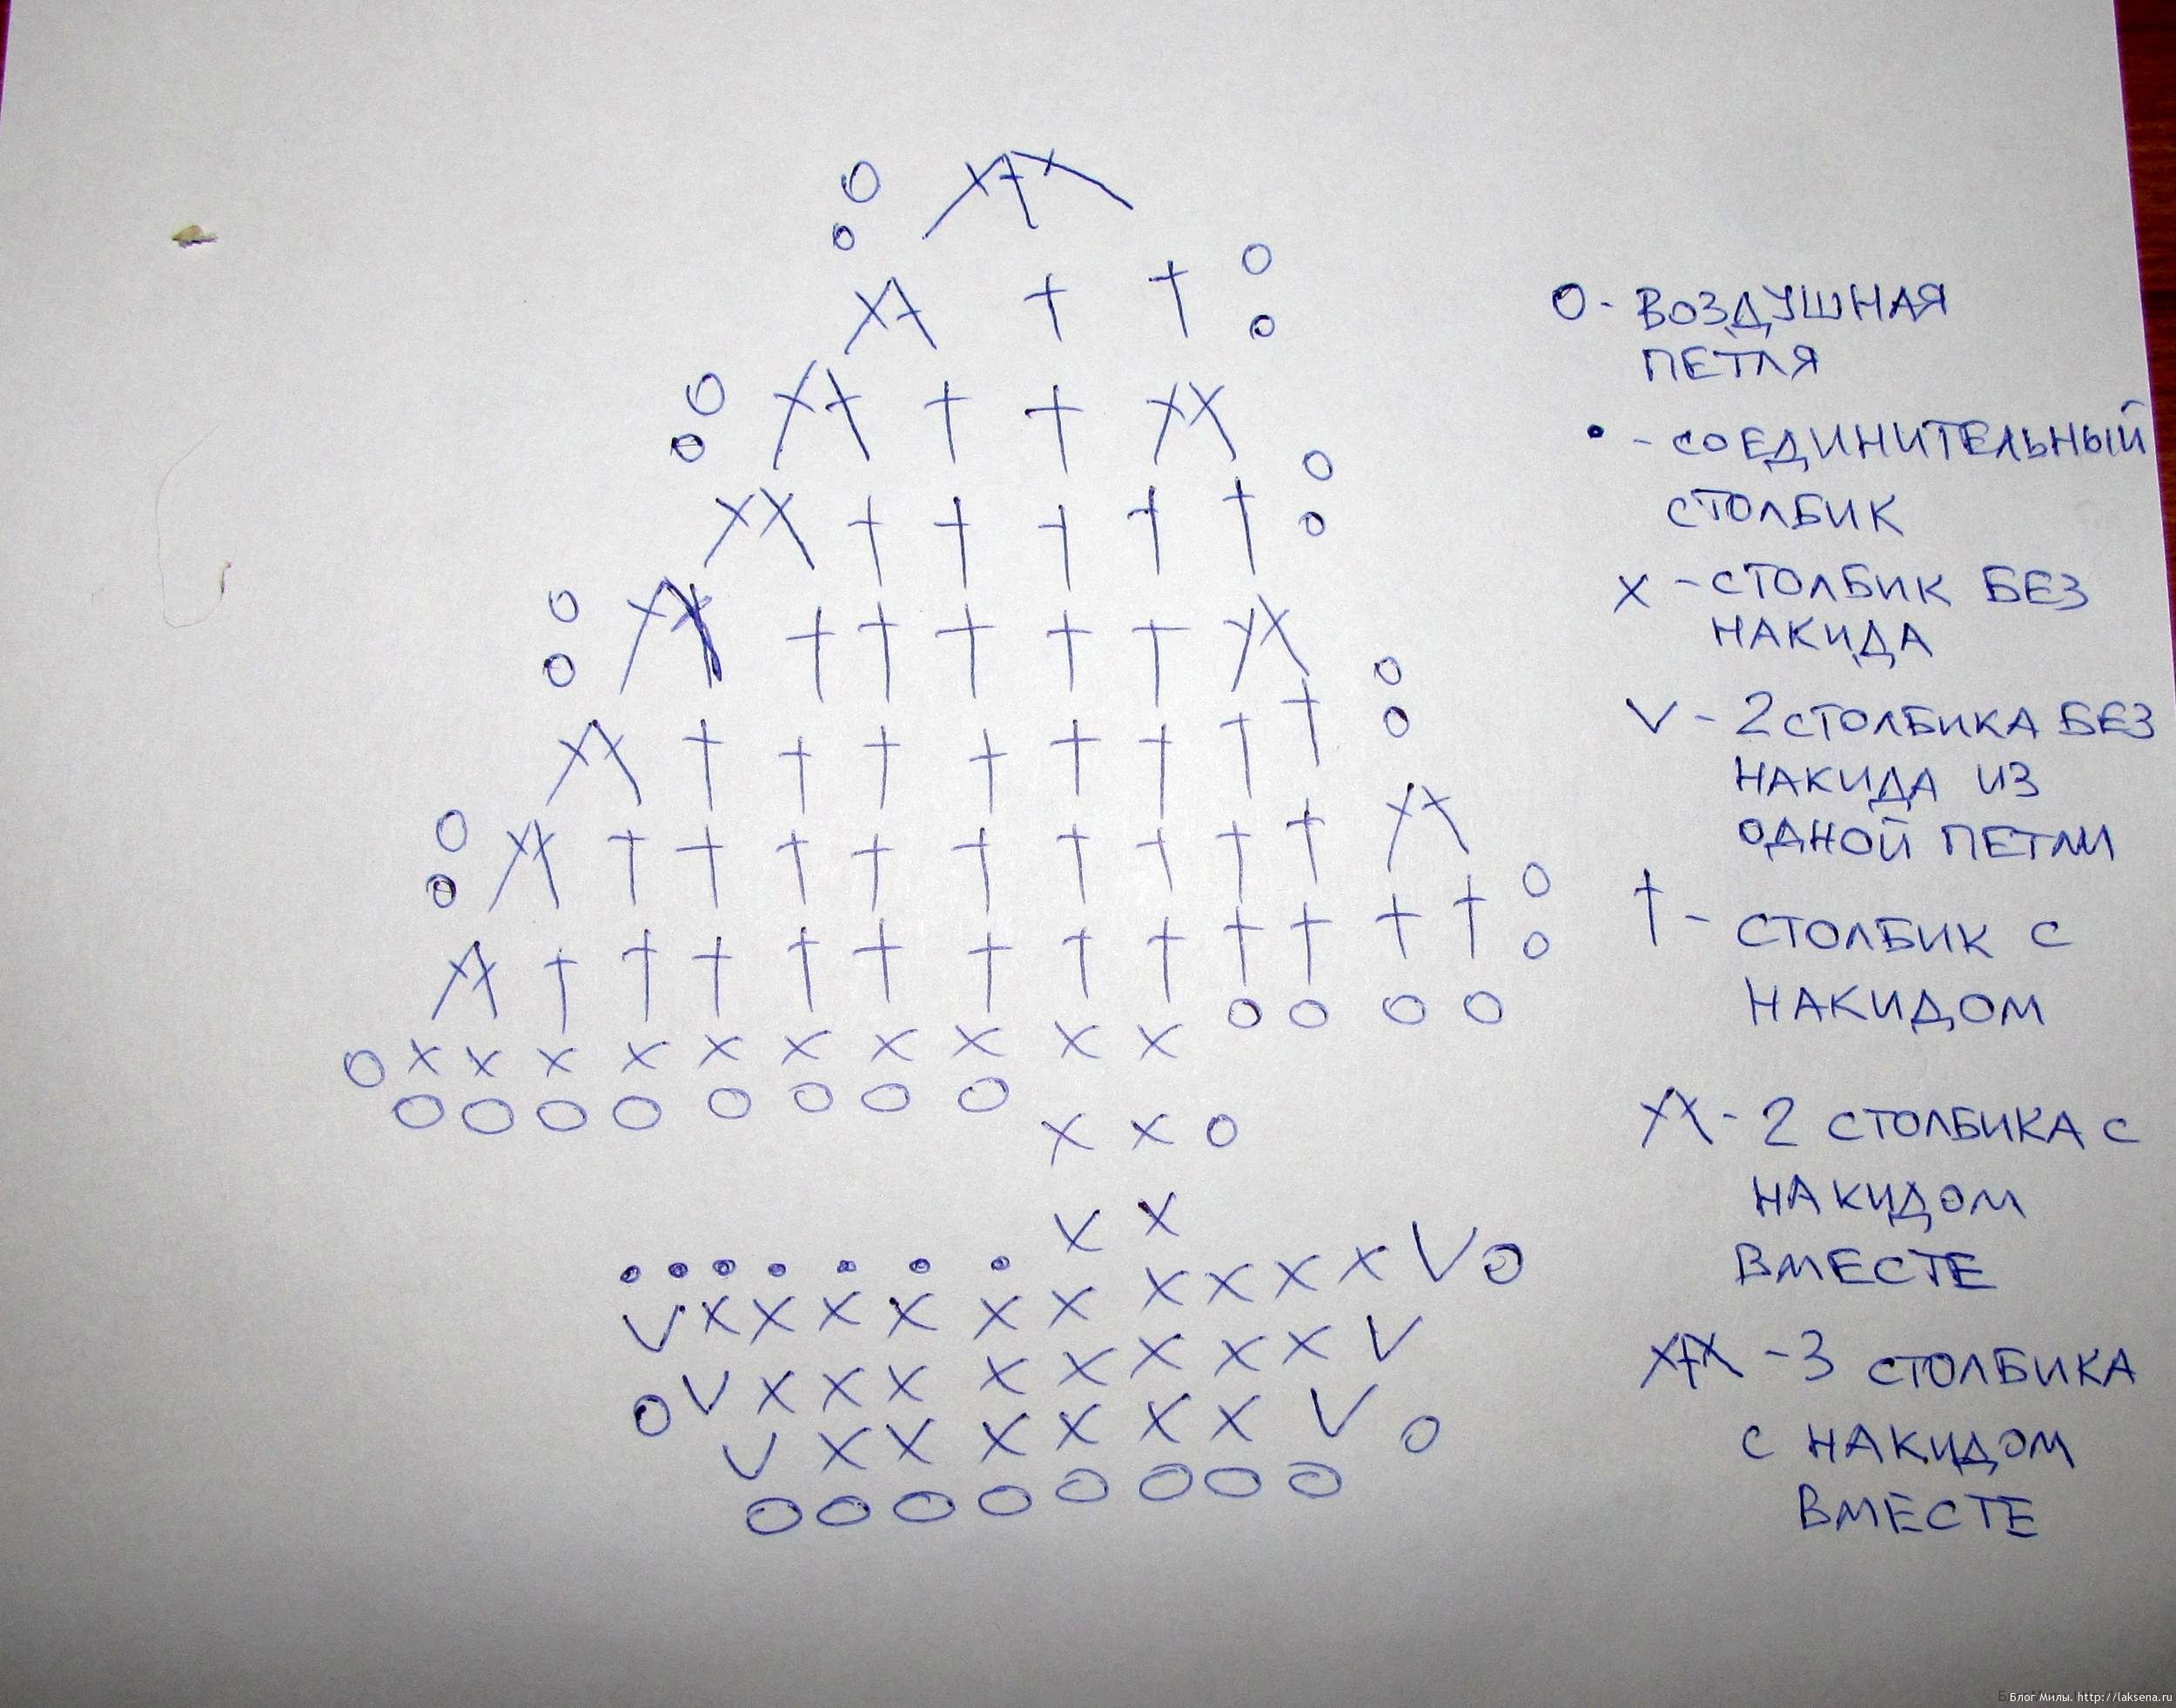 О - ВОЗДУШНАЯ
ПЕТЛЯ
• - СОЕДИНИТЕЛЬНЫЙ
СТОЛБИК
X - СТОЛБИК БЕЗ
НАКИДА
V - 2 СТОЛБИКА БЕЗ
НАКИДА ИЗ
ОДНОЙ ПЕТЛИ
† - СТОЛБИК С
НАКИДОМ
- 2 СТОЛБИКА С
НАКИДОМ
ВМЕСТЕ
- 3 СТОЛБИКА
С НАКИДОМ
ВМЕСТЕ
Блог Милы. http://laksena.ru